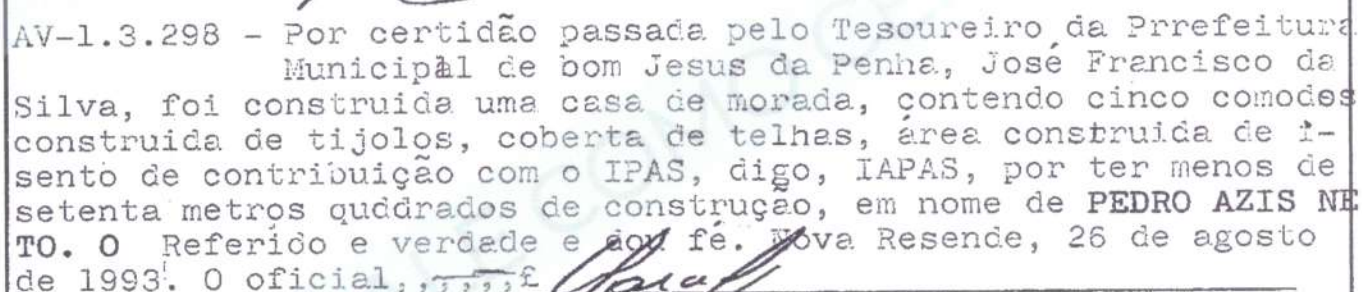 AV-1.3.298 - Por certidão passada pelo Tesoureiro da Prrefeitura
Municipàl de bom Jesus da Penha, José Francisco da
Silva, foi construida uma casa de morada, contendo cinco comodos
construida de tijolos, coberta de telhas, área construida de i-
sento de contribuição com o IPAS, digo, IAPAS, por ter menos de
setenta metros quddrados de construção, em nome de PEDRO AZIS NE
TO. O Referido e verdade e dou fé. Nova Resende, 26 de agosto
de 1993. O oficial, ,,,,,£